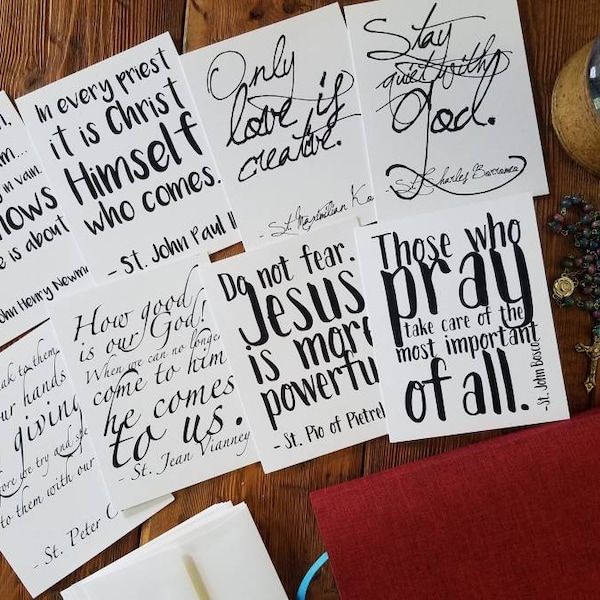 in vain
is about
John Henry Newm
In every priest
it is Christ
Himself
who comes.
- St. John Paul II
Only
love is
creative.
- St. Maximilian Ko
Stay
quiet with
God.
- St. Charles Borromeo
to them
our hands
giving
we try and
to them with our
- St. Peter C
How good
is our God!
When we can no longer
come to him
he comes
to us.
- St. Jean Vianney
Do not fear.
Jesus
is more
powerful
- St. Pio of Pietrel
Those who
pray
take care of the
most important
of all.
- St. John Bosco